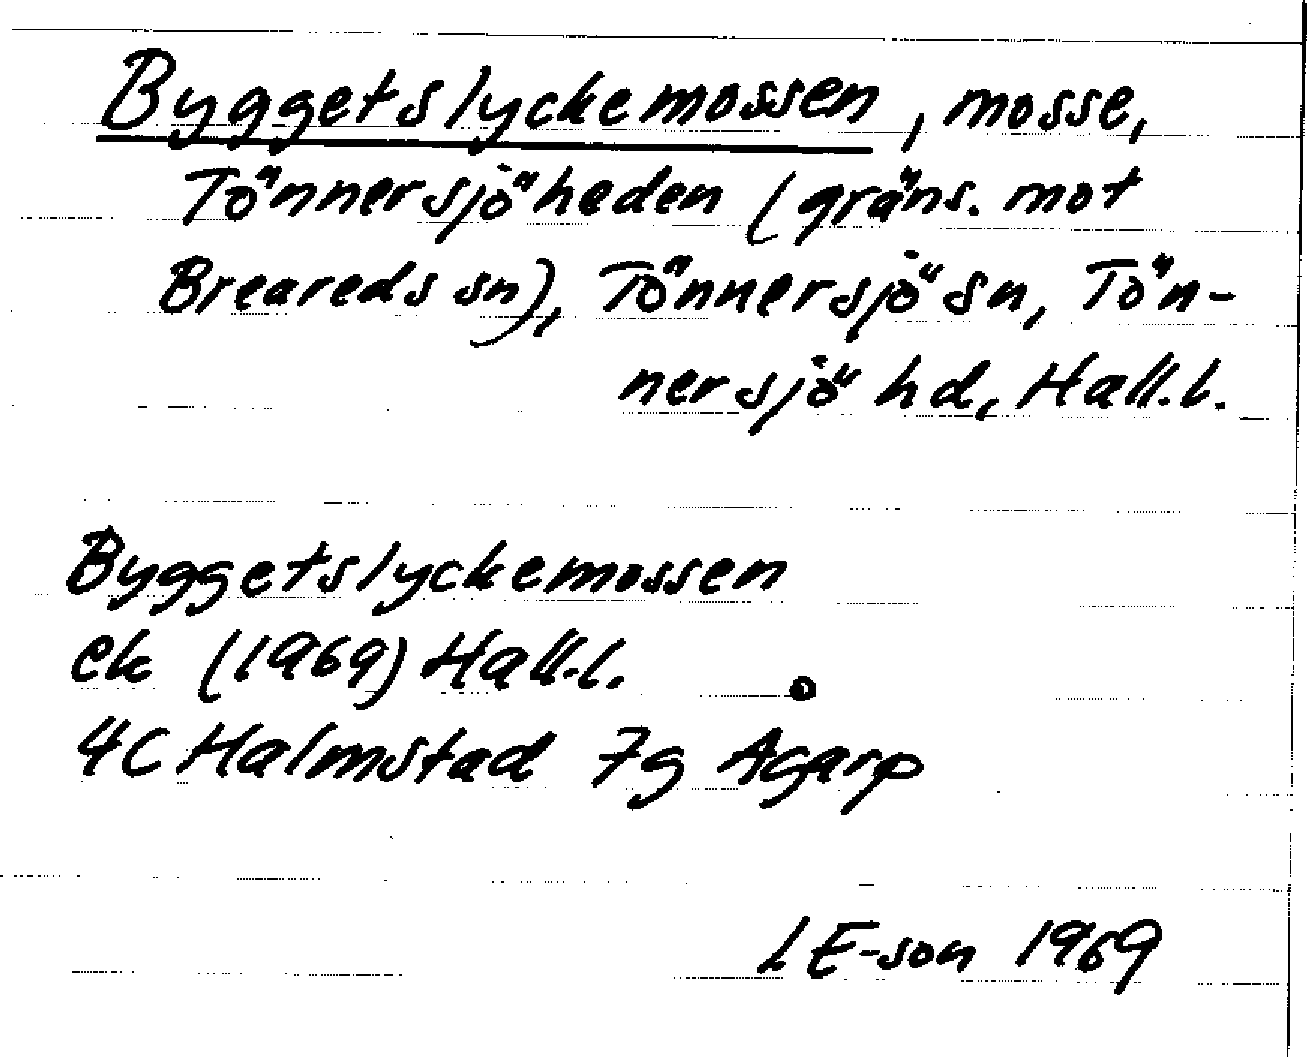 Byggetslyckemossen, mosse,
Tönnersjöheden (gräns. mot
Breareds sn), Tönnersjö sn, Tön-
nersjö hd, Hall.l.
Byggetslyckemossen
ek (1969) Hall.l.
4C Halmstad 7g Ågarp
LE-son 1969